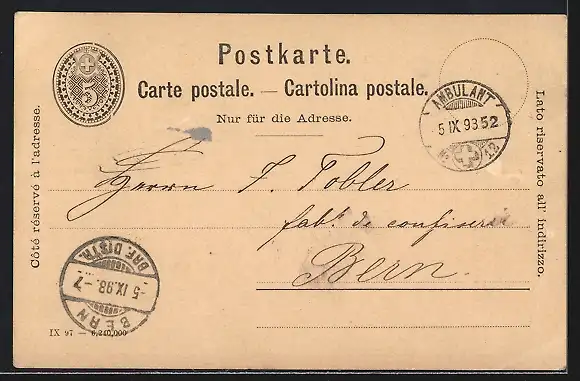 5
Postkarte.
Carte postale. — Cartolina postale.
Nur für die Adresse.
Côté réservé à l'adresse.
Lato riservato all' indirizzo.
AMBULANT
5 IX 98 52
No 13
Herrn J. Tobler
fabt. de confiserie
Bern.
BRF. DISTR.
-5 IX.98.-7
BERN
IX 97 — 6,240,000